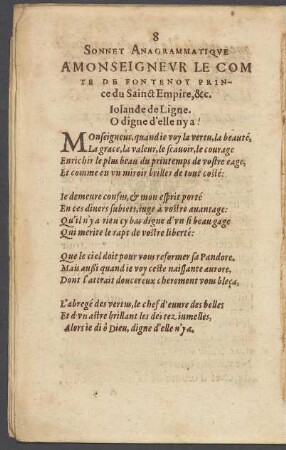 8
SONNET ANAGRAMMATIQVE
A MONSEIGNEVR LE COM
TE DE FONTENOY PRIN-
ce du Sainct Empire, &c.
Iolande de Ligne.
O digne d'elle n'y a!
MOnseigneur, quand ie voy la vertu, la beauté,
La grace, la valeur, le scauoir, le courage
Enrichir le plus beau du printemps de vostre eage,
Et comme en vn miroir briller de tout costé:
Ie demeure confus, & mon esprit porté
En ces diuers subiets, iuge à vostre auantage:
Qu'il n'y a rien cy bas digne d'vn si beau gage
Qui merite le rapt de vostre liberté:
Que le ciel doit pour vous reformer sa Pandore.
Mais aussi quand ie voy ceste naissante aurore,
Dont l'attrait doucereux cherement vous bleça,
L'abregé des vertus, le chef d'euure des belles
Et d'vn astre brillant les deitez iumelles,
Alors ie di ô Dieu, digne d'elle n'y a.